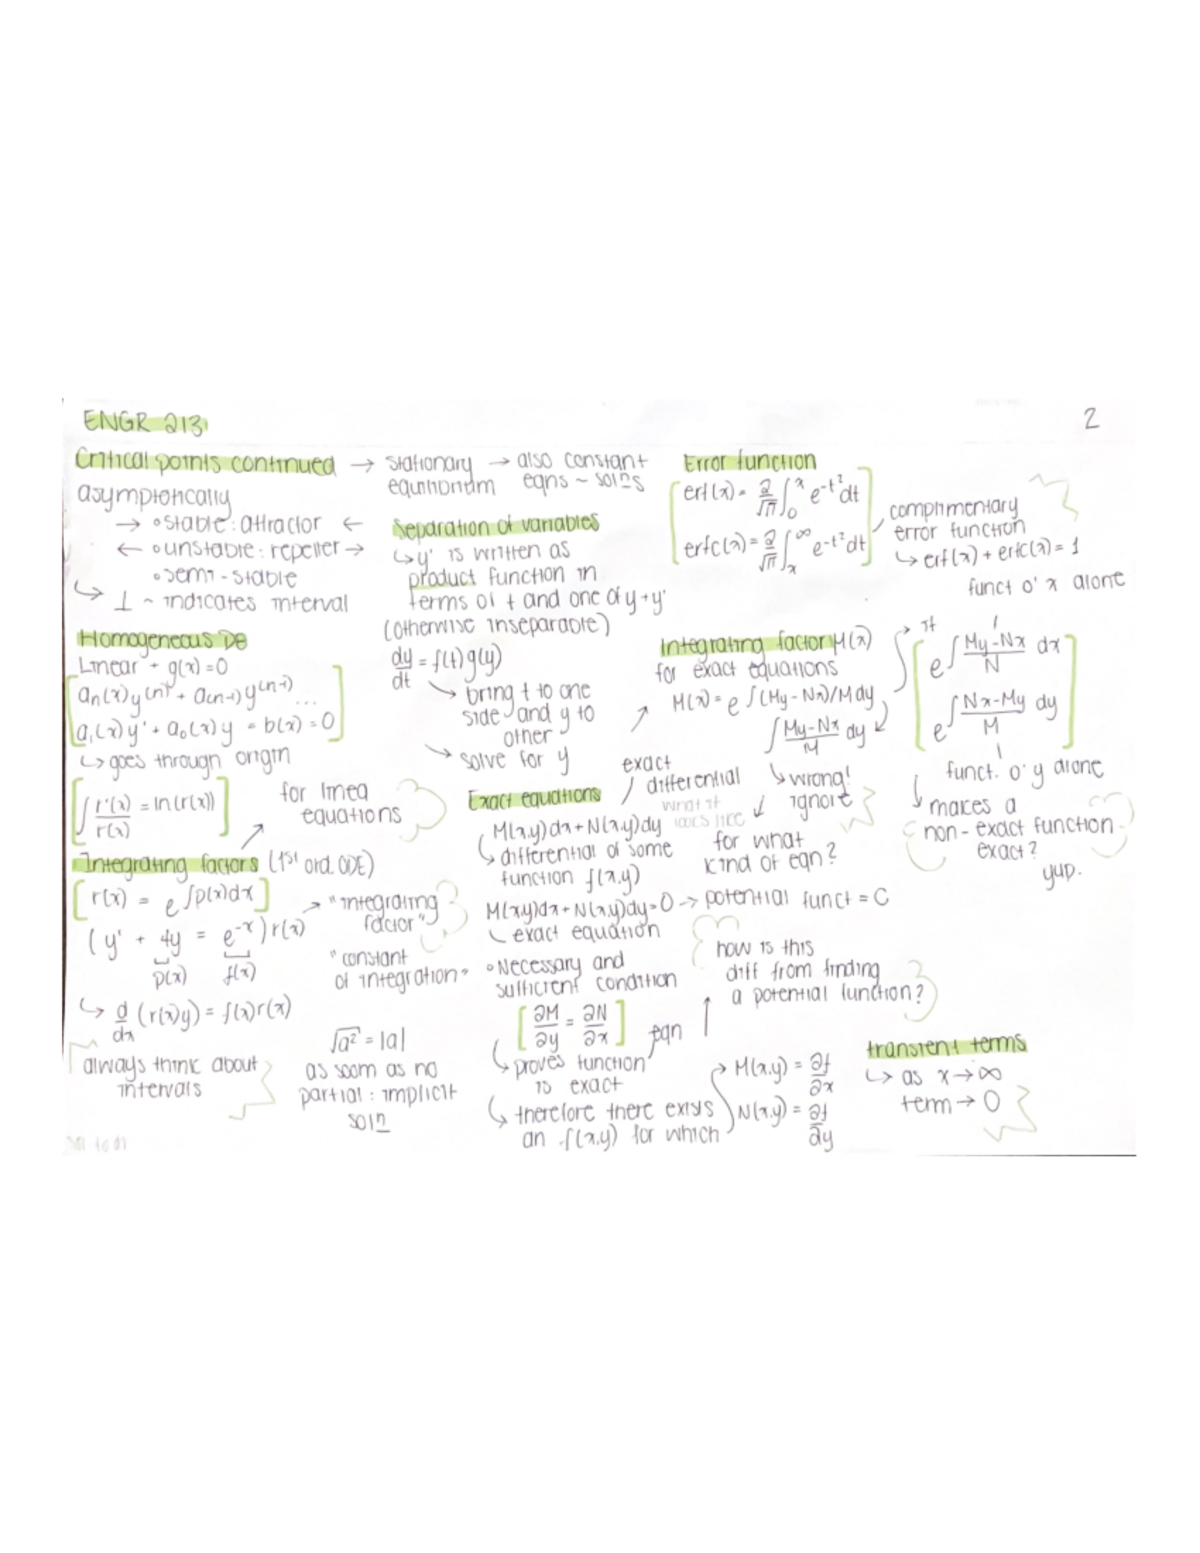 ENGR 213
2
Critical points continued → stationary equilibrium → also constant eqns ~ sol<u>n</u>s
asymptotically
→ ∘stable: attractor ←
← ∘unstable: repeller →
∘semi-stable
↳ ⊥ ~ indicates interval
Homogeneous DE
Linear + g(x)=0
aₙ(x)y⁽ⁿ⁾ + a₍ₙ₋₁₎y⁽ⁿ⁻¹⁾ ...
a₁(x)y' + a₀(x)y = b(x) = 0
↳ goes through origin
∫ r'(x)/r(x) = ln(r(x))
for linea
equations
Integrating factors (1st ord. ODE)
r(x) = e^∫p(x)dx
→ "integrating
factor"
(y' + 4y = e^-x) r(x)
p(x) f(x)
"constant
of integration"
↳ d/dx (r(x)y) = f(x)r(x)
always think about
intervals
√a² = |a|
as soom as no
partial: implicit
sol<u>n</u>
Separation of variables
↳ y' is written as
product function in
terms of t and one of y + y'
(otherwise inseparable)
dy/dt = f(t)g(y)
↳ bring t to one
side and y to
other
↳ solve for y
Exact equations
exact
differential
M(x,y)dx + N(x,y)dy
what it
looks like
↳ differential of some
function f(x,y)
M(x,y)dx + N(x,y)dy = 0 → potential funct = C
exact equation
∘Necessary and
sufficient condition
∂M/∂y = ∂N/∂x
eqn
↳ proves function
is exact
↳ therefore there exists
an f(x,y) for which
M(x,y) = ∂f/∂x
N(x,y) = ∂f/∂y
how is this
diff from finding
a potential function?
Error function
erf(x) = 2/√π ∫₀ˣ e^-t² dt
erfc(x) = 2/√π ∫ₓ^∞ e^-t² dt
complimentary
error function
↳ erf(x) + erfc(x) = 1
Integrating factor M(x)
for exact equations
M(x) = e ∫(My-Nx)/M dy
∫ My-Nx/M dy
↳ wrong!
ignore
for what
kind of eqn?
funct o' x alone
e^∫ My-Nx/N dx
e^∫ Nx-My/M dy
funct. o' y alone
↳ makes a
non-exact function
exact?
yup.
transient terms
↳ as x → ∞
term → 0